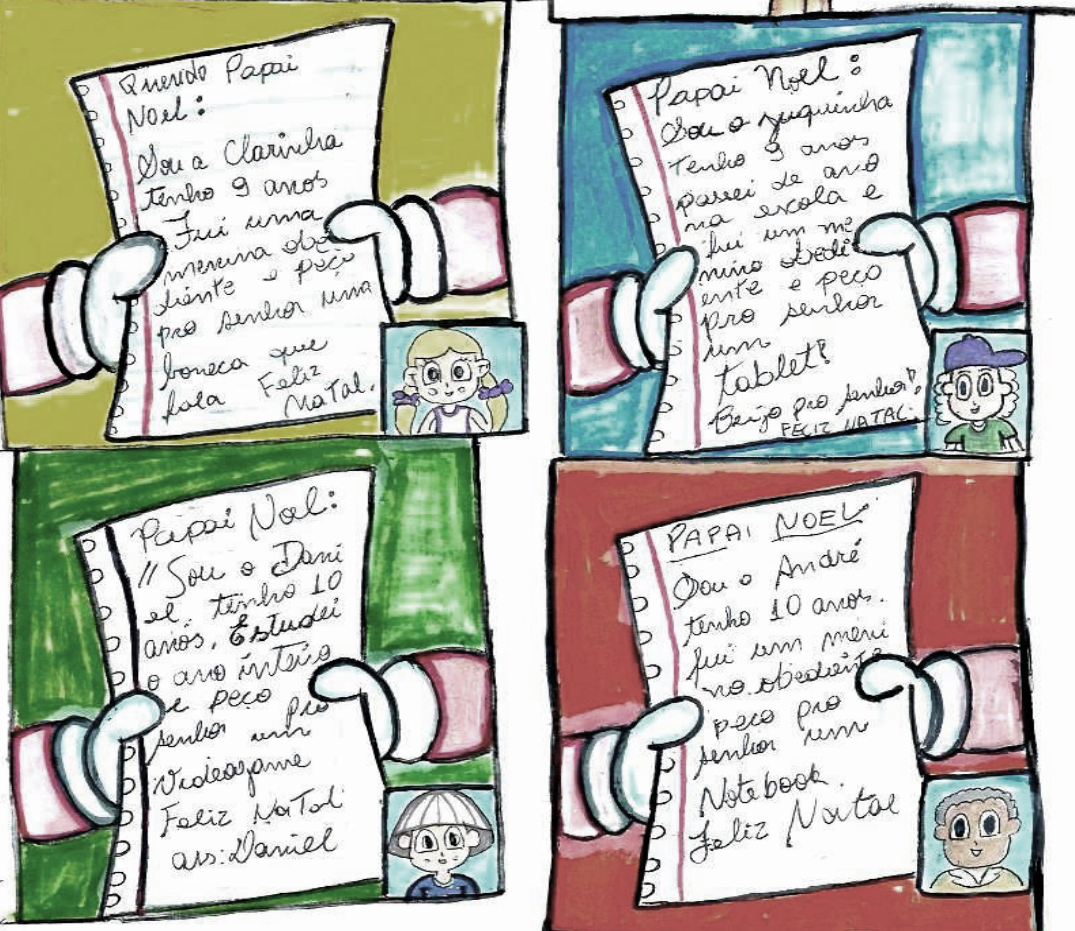 Querido Papai
Noel:
Sou a Clarinha
tenho 9 anos
Fui uma
menina obe
diente e peço
pro senhor uma
boneca que
fala Feliz
Natal.
Papai Noel:
Sou o Juquinha
Tenho 9 anos
passei de ano
na escola e
fui um me
nino obedi
ente e peço
pro senhor
um
tablet!
Beijo pro senhor!
FELIZ NATAL.
Papai Noel:
"Sou o Dani
el, tenho 10
anos. Estudei
o ano inteiro
e peço pro
senhor um
Videogame
Feliz Natal
ass: Daniel
PAPAI NOEL:
Sou o André
tenho 10 anos.
fui um meni
no obediente
peço pro
senhor um
Notebook
Feliz Natal